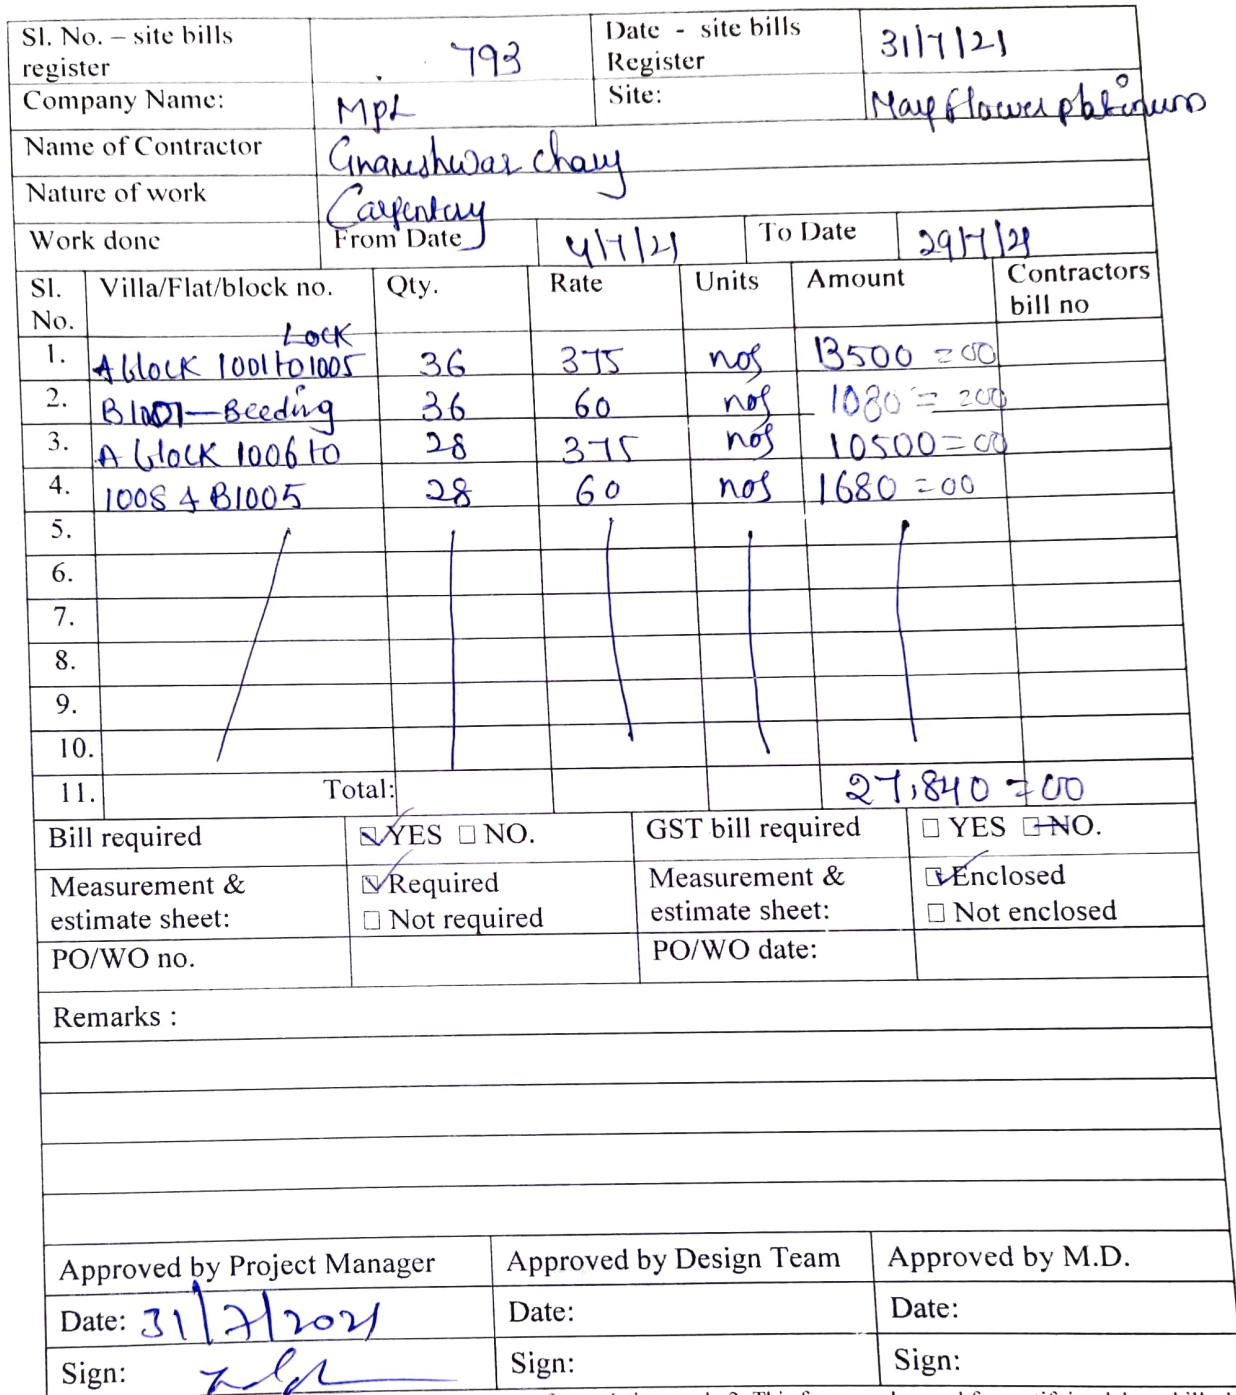 Sl. No. – site bills register 793 Date - site bills Register 31/7/21
Company Name: MpL Site: Mayflower platinum
Name of Contractor Gnaneshwar chary
Nature of work Carpentry
Work done From Date 4/7/21 To Date 29/7/21
Sl. No. Villa/Flat/block no. Qty. Rate Units Amount Contractors bill no
Lock
1. A block 1001 to 1005 36 375 nos 13500=00
2. B1001—Beeding 36 60 nos 1080=00
3. A block 1006 to 28 375 nos 10500=00
4. 1008 & B1005 28 60 nos 1680=00
5.
6.
7.
8.
9.
10.
11. Total: 27,840=00
Bill required YES NO. GST bill required YES NO.
Measurement & estimate sheet: Required Not required Measurement & estimate sheet: Enclosed Not enclosed
PO/WO no. PO/WO date:
Remarks :
Approved by Project Manager Approved by Design Team Approved by M.D.
Date: 31/7/2021 Date: Date:
Sign: Sign: Sign: